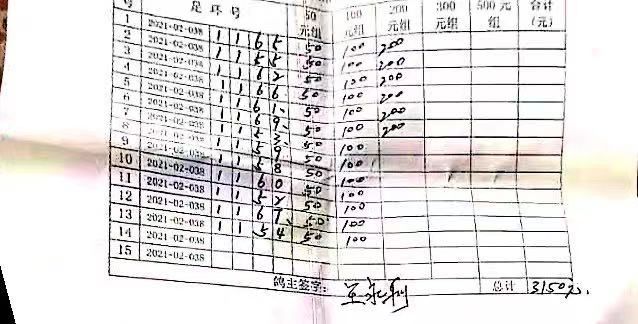 号 足环号 50元组 100元组 200元组 300元组 500元组 合计(元)
1 2021-02-038 1165 50 100 200
2 2021-02-038 1155 50 100 200
3 2021-02-038 1162 50 100 200
4 2021-02-038 1166 50 100 200
5 2021-02-038 1161 50 100 200
6 2021-02-038 1169 50 100 200
7 2021-02-038 50 100
8 2021-02-038 50 100
9 2021-02-038 1158 50 100
10 2021-02-038 1160 50 100
11 2021-02-038 1152 50 100
12 2021-02-038 50 100
13 2021-02-038 1154 50 100
14 2021-02-038
15 2021-02-038
鸽主签字: 总计 3150元.